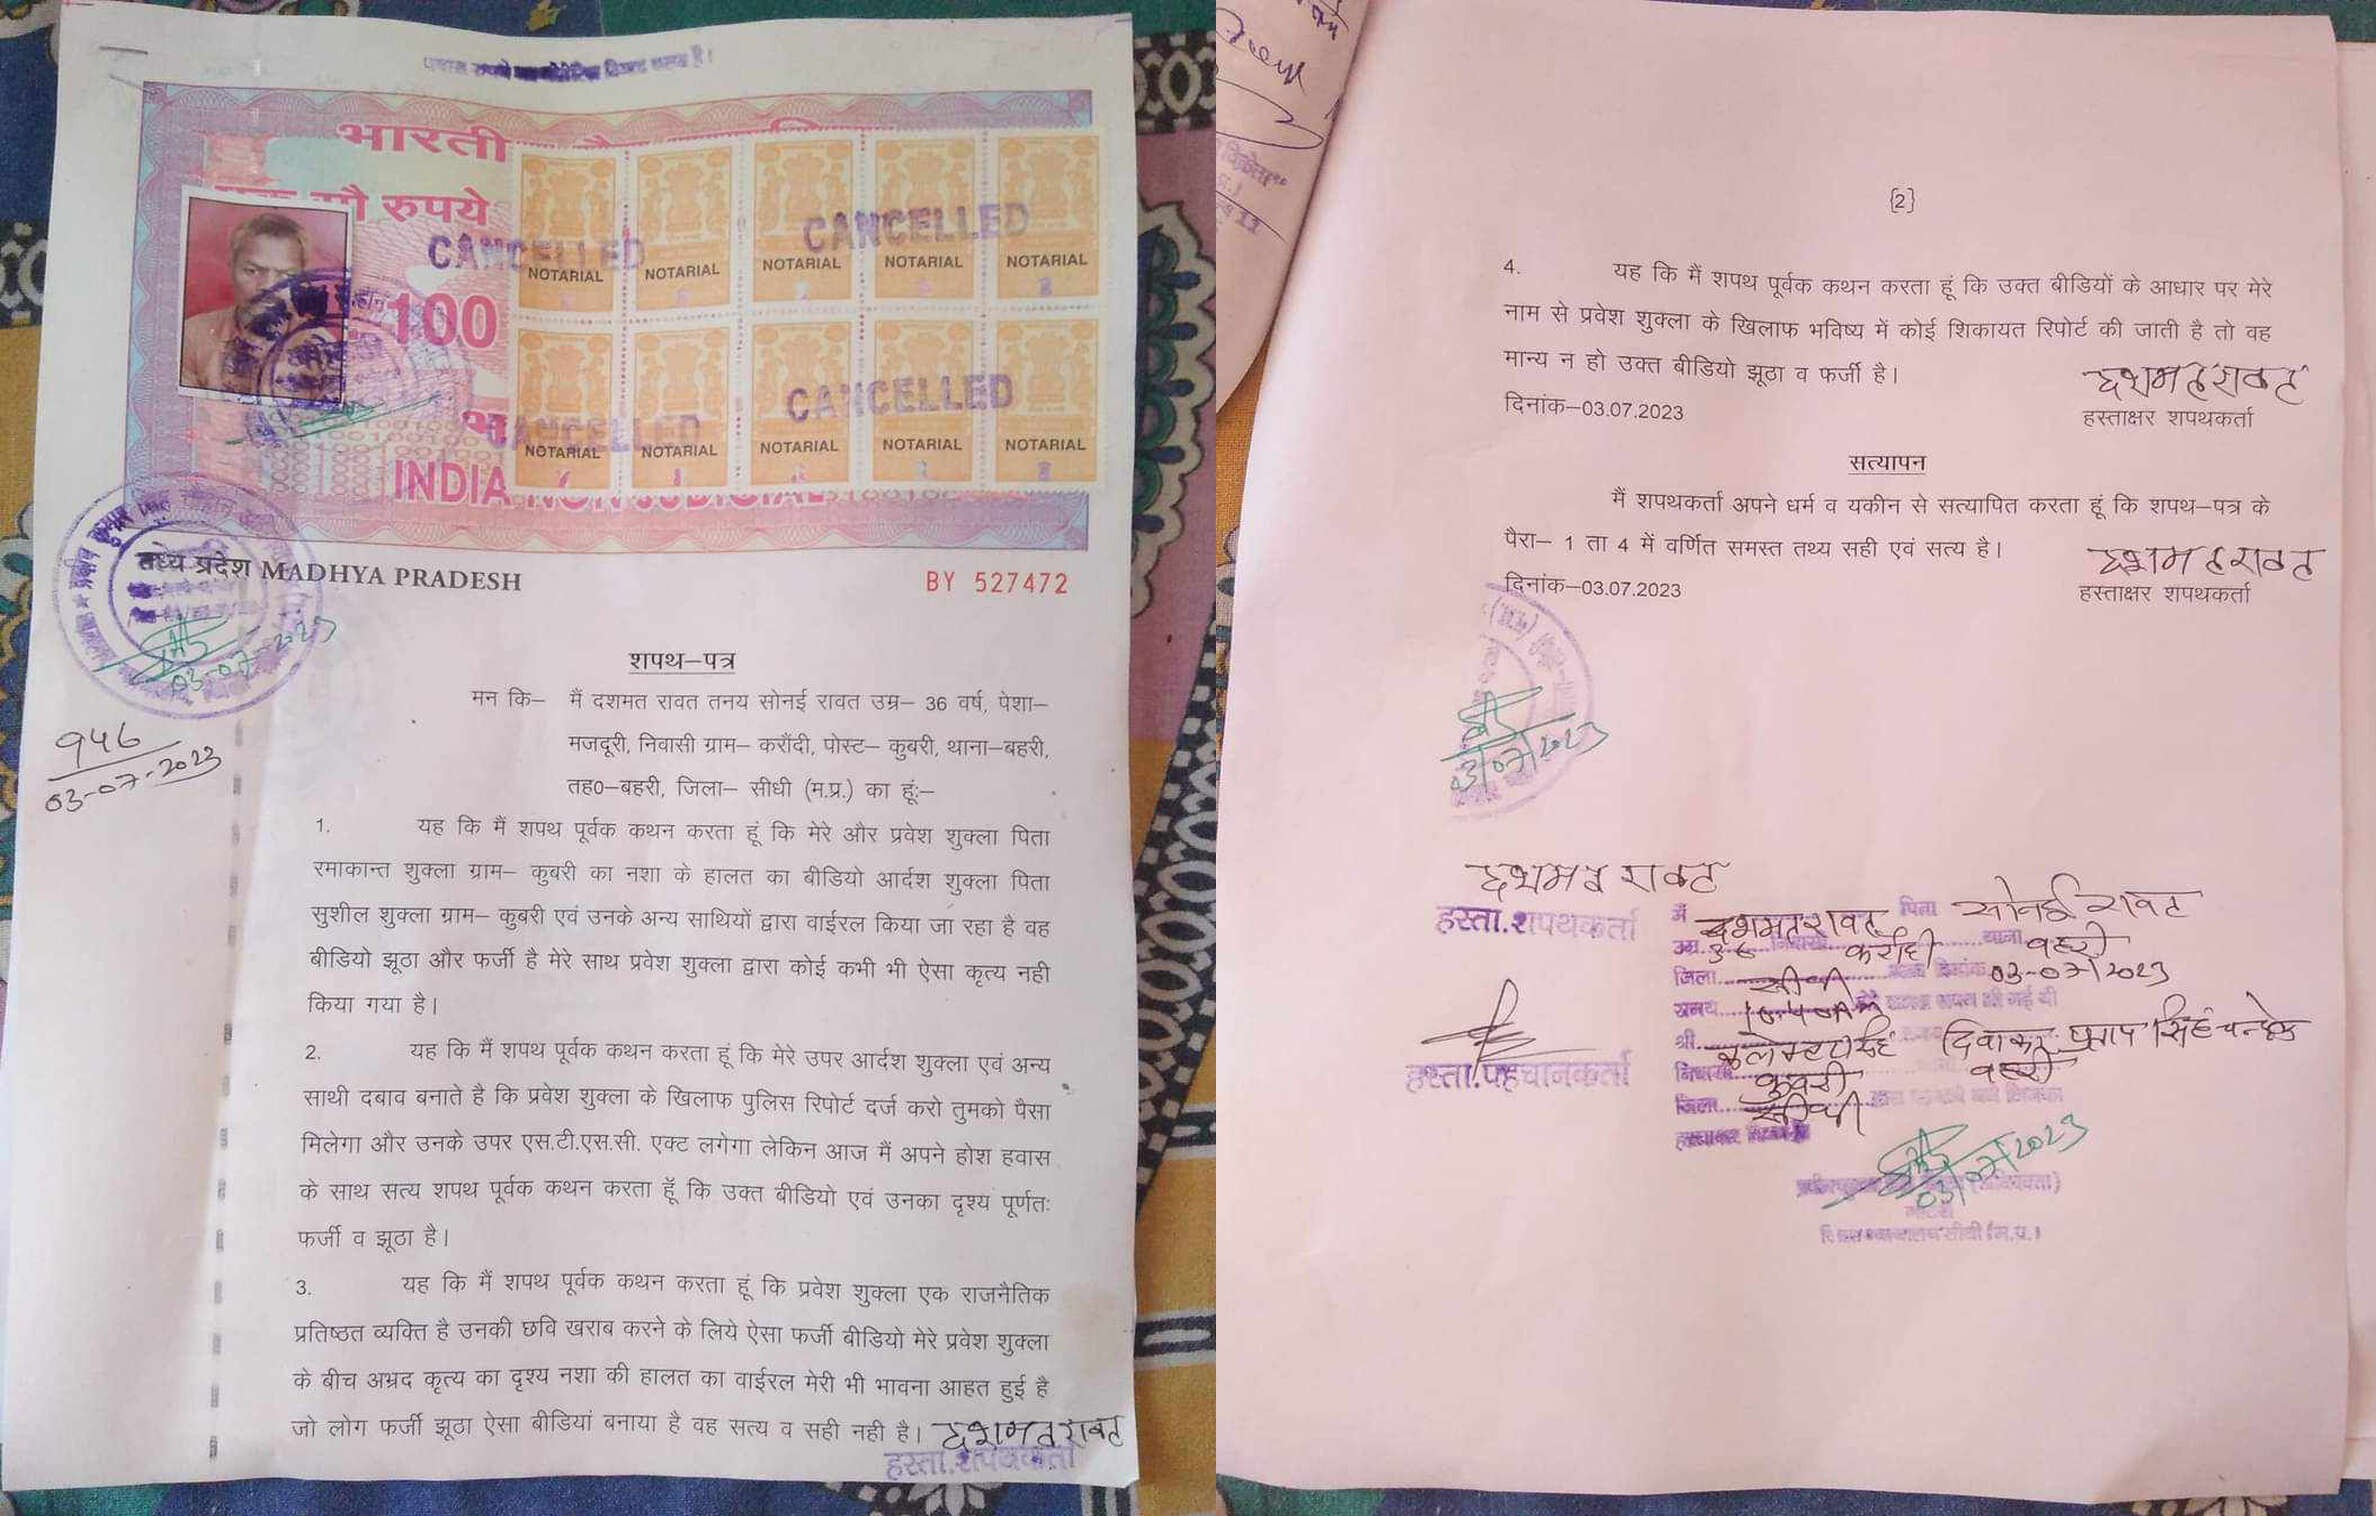 भारती
सौ रुपये
100
CANCELLED
CANCELLED
CANCELLED
CANCELLED
NOTARIAL NOTARIAL NOTARIAL NOTARIAL NOTARIAL
NOTARIAL NOTARIAL NOTARIAL NOTARIAL NOTARIAL
INDIA NON JUDICIAL
मध्य प्रदेश MADHYA PRADESH
BY 527472
03-07-2023
946
03-07-2023
शपथ–पत्र
मन कि– मैं दशमत रावत तनय सोनई रावत उम्र– 36 वर्ष, पेशा–
मजदूरी, निवासी ग्राम– करौंदी, पोस्ट– कुबरी, थाना–बहरी,
तह0–बहरी, जिला– सीधी (म.प्र.) का हूं:–
1. यह कि मैं शपथ पूर्वक कथन करता हूं कि मेरे और प्रवेश शुक्ला पिता
रमाकान्त शुक्ला ग्राम– कुबरी का नशा के हालत का बीडियो आर्दश शुक्ला पिता
सुशील शुक्ला ग्राम– कुबरी एवं उनके अन्य साथियों द्वारा वाईरल किया जा रहा है वह
बीडियो झूठा और फर्जी है मेरे साथ प्रवेश शुक्ला द्वारा कोई कभी भी ऐसा कृत्य नही
किया गया है।
2. यह कि मैं शपथ पूर्वक कथन करता हूं कि मेरे उपर आर्दश शुक्ला एवं अन्य
साथी दबाव बनाते है कि प्रवेश शुक्ला के खिलाफ पुलिस रिपोर्ट दर्ज करो तुमको पैसा
मिलेगा और उनके उपर एस.टी.एस.सी. एक्ट लगेगा लेकिन आज मैं अपने होश हवास
के साथ सत्य शपथ पूर्वक कथन करता हूँ कि उक्त बीडियो एवं उनका दृश्य पूर्णतः
फर्जी व झूठा है।
3. यह कि मैं शपथ पूर्वक कथन करता हूं कि प्रवेश शुक्ला एक राजनैतिक
प्रतिष्ठत व्यक्ति है उनकी छवि खराब करने के लिये ऐसा फर्जी बीडियो मेरे प्रवेश शुक्ला
के बीच अभ्रद कृत्य का दृश्य नशा की हालत का वाईरल मेरी भी भावना आहत हुई है
जो लोग फर्जी झूठा ऐसा बीडियां बनाया है वह सत्य व सही नही है। दशमत रावत
हस्ता.शपथकर्ता
{2}
4. यह कि मैं शपथ पूर्वक कथन करता हूं कि उक्त बीडियों के आधार पर मेरे
नाम से प्रवेश शुक्ला के खिलाफ भविष्य में कोई शिकायत रिपोर्ट की जाती है तो वह
मान्य न हो उक्त बीडियो झूठा व फर्जी है।
दशमत रावत
दिनांक–03.07.2023
हस्ताक्षर शपथकर्ता
सत्यापन
मैं शपथकर्ता अपने धर्म व यकीन से सत्यापित करता हूं कि शपथ–पत्र के
पैरा– 1 ता 4 में वर्णित समस्त तथ्य सही एवं सत्य है।
दशमत रावत
दिनांक–03.07.2023
हस्ताक्षर शपथकर्ता
03/07/2023
दशमत रावत
हस्ता.शपथकर्ता
मैं दशमत रावत पिता सोनई रावत
उम्र 36 करौंदी थाना बहरी
जिला सीधी दिनांक 03-07/2023
समय
श्री दिवाकर प्रताप सिंह
हस्ता.पहचानकर्ता
कुबरी बहरी
जिला सीधी
03/07/2023